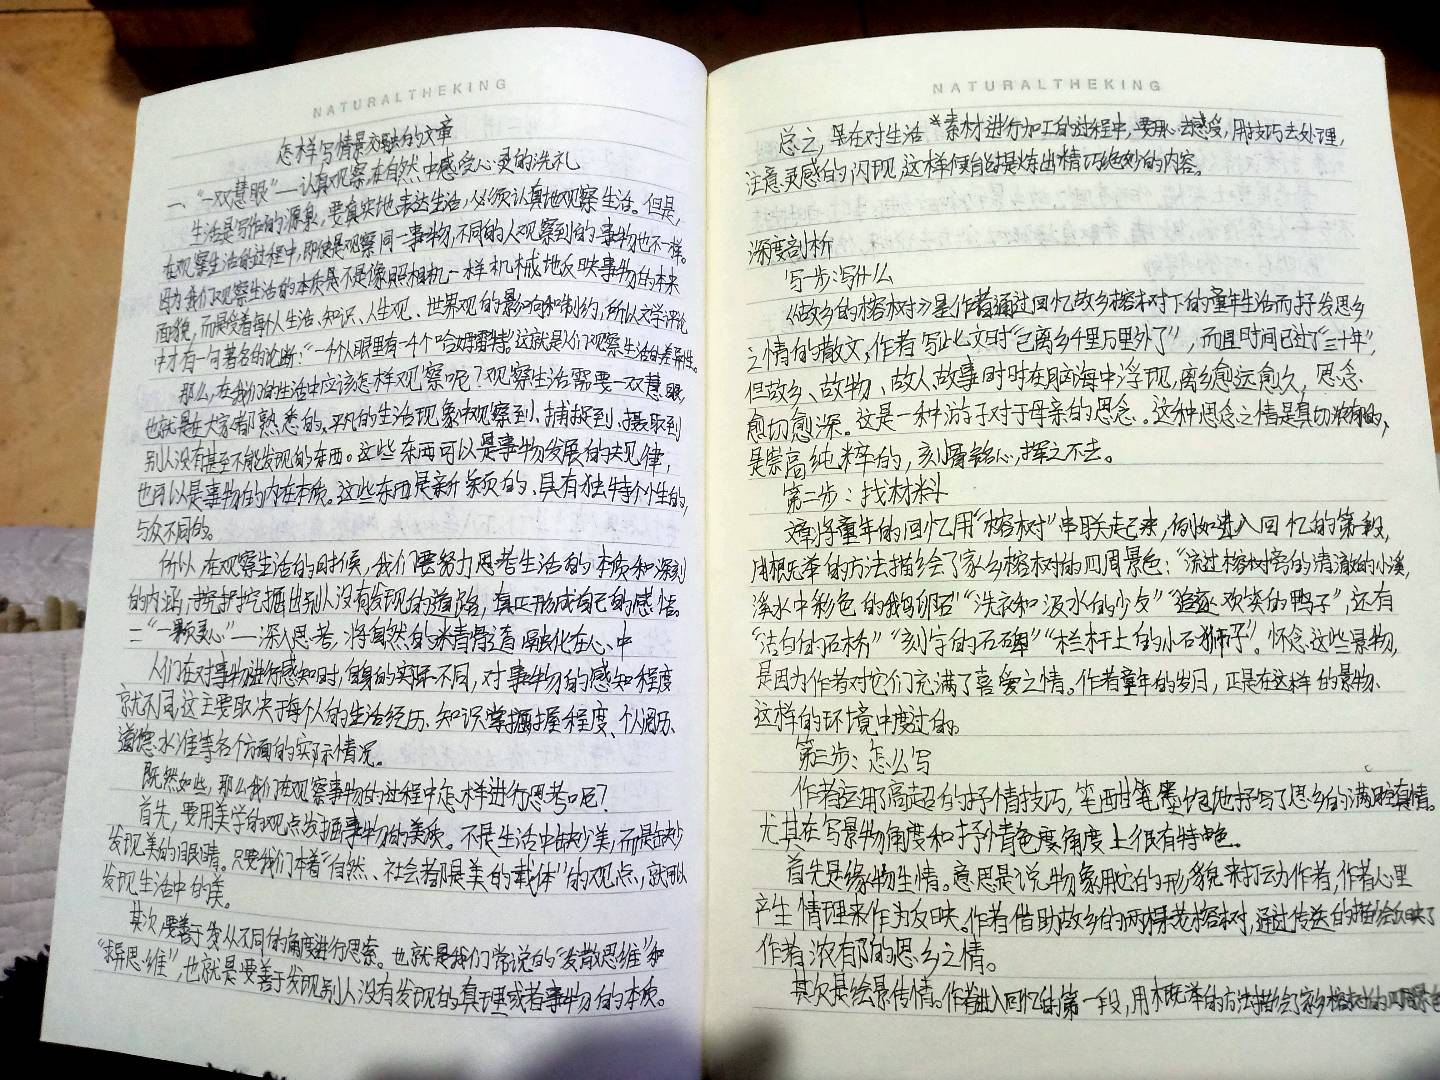 NATURALTHEKING
怎样写情景交融的文章
一、“一双慧眼”——认真观察,在自然中感受心灵的洗礼
生活是写作的源泉,要真实地表达生活,必须认真地观察生活。但是,
在观察生活的过程中,即使是观察同一事物,不同的人观察到的事物也不一样。
因为我们观察生活的本质是不是像照相机一样机械地反映事物的本来
面貌,而是受着每个人生活、知识、人生观、世界观的影响和制约,所以文学评论
中才有一句著名的论断:“一千个人眼里有一千个哈姆雷特”这就是人们观察生活的差异性。
那么,在我们的生活中应该怎样观察呢?观察生活需要一双慧眼,
也就是在大家都熟悉的、平凡的生活现象中观察到、捕捉到、摄取到
别人没有甚至不能发现的东西。这些东西可以是事物发展的规律,
也可以是事物的内在本质。这些东西是新颖的、具有独特个性的,
与众不同的。
所以在观察生活的时候,我们要努力思考生活的本质和深刻
的内涵,挖掘出别人没有发现的道理,真正形成自己的感悟。
二“一颗灵心”——深入思考,将自然的水青骨道融化在心中
人们在对事物进行感知时,自身的实际不同,对事物的感知程度
就不同,这主要取决于每个人的生活经历、知识掌握程度、个人阅历、
道德水准等各个方面的实际情况。
既然如些,那么我们在观察事物的过程中怎样进行思考呢?
首先,要用美学的观点发掘事物的美质。不是生活中缺少美,而是缺少
发现美的眼睛。只要我们本着“自然、社会都是美的载体”的观点,就可以
发现生活中的美。
其次,要善于从不同的角度进行思索。也就是我们常说的“发散思维”和
“求异思维”,也就是要善于发现别人没有发现的真理或者事物的本质。
NATURALTHEKING
总之,是在对生活素材进行加工的过程中,要用心去感受,用技巧去处理,
注意灵感的闪现,这样便自时是炼出精巧绝妙的内容。
深度剖析
写一步:写什么
《故乡的榕树》是作者通过回忆故乡榕树下的童年生活而抒发思乡
之情的散文,作者写此文时“已离乡千里万里外了”,而且时间已过“三十年”,
但故乡、故物、故人故事时时在脑海中浮现,离乡愈远愈久,思念
愈切愈深。这是一种游子对于母亲的思念。这种思念之情是真切浓郁的,
是崇高纯粹的,刻骨铭心,挥之不去。
第二步:找材料
文章将童年的回忆用“榕树”串联起来,例如进入回忆的第一段,
用概举的方法描绘了家乡榕树的四周景色:“流过榕树旁的清澈的小溪,
溪水中彩色的鹅卵石”“洗衣和汲水的少女”“追逐欢笑的鸭子”,还有
“洁白的石桥”“刻字的石碑”“栏杆上的小石狮子”。怀念这些景物,
是因为作者对它们充满了喜爱之情。作者童年的岁月,正是在这样的景物、
这样的环境中度过的。
第三步:怎么写
作者运用了高超的抒情技巧,笔酣墨饱地抒写了思乡的满腔真情。
尤其在写景物角度和抒情角度上很有特色。
首先是缘物生情。意思是说物象用它的形貌来打动作者,作者心里
产生情理来作为反映。作者借助故乡的两棵老榕树,通过传送的描绘反映了
作者浓郁的思乡之情。
其次是绘景传情。作者进入回忆的第一段,用概举的方法描绘了家乡榕树的四周景色